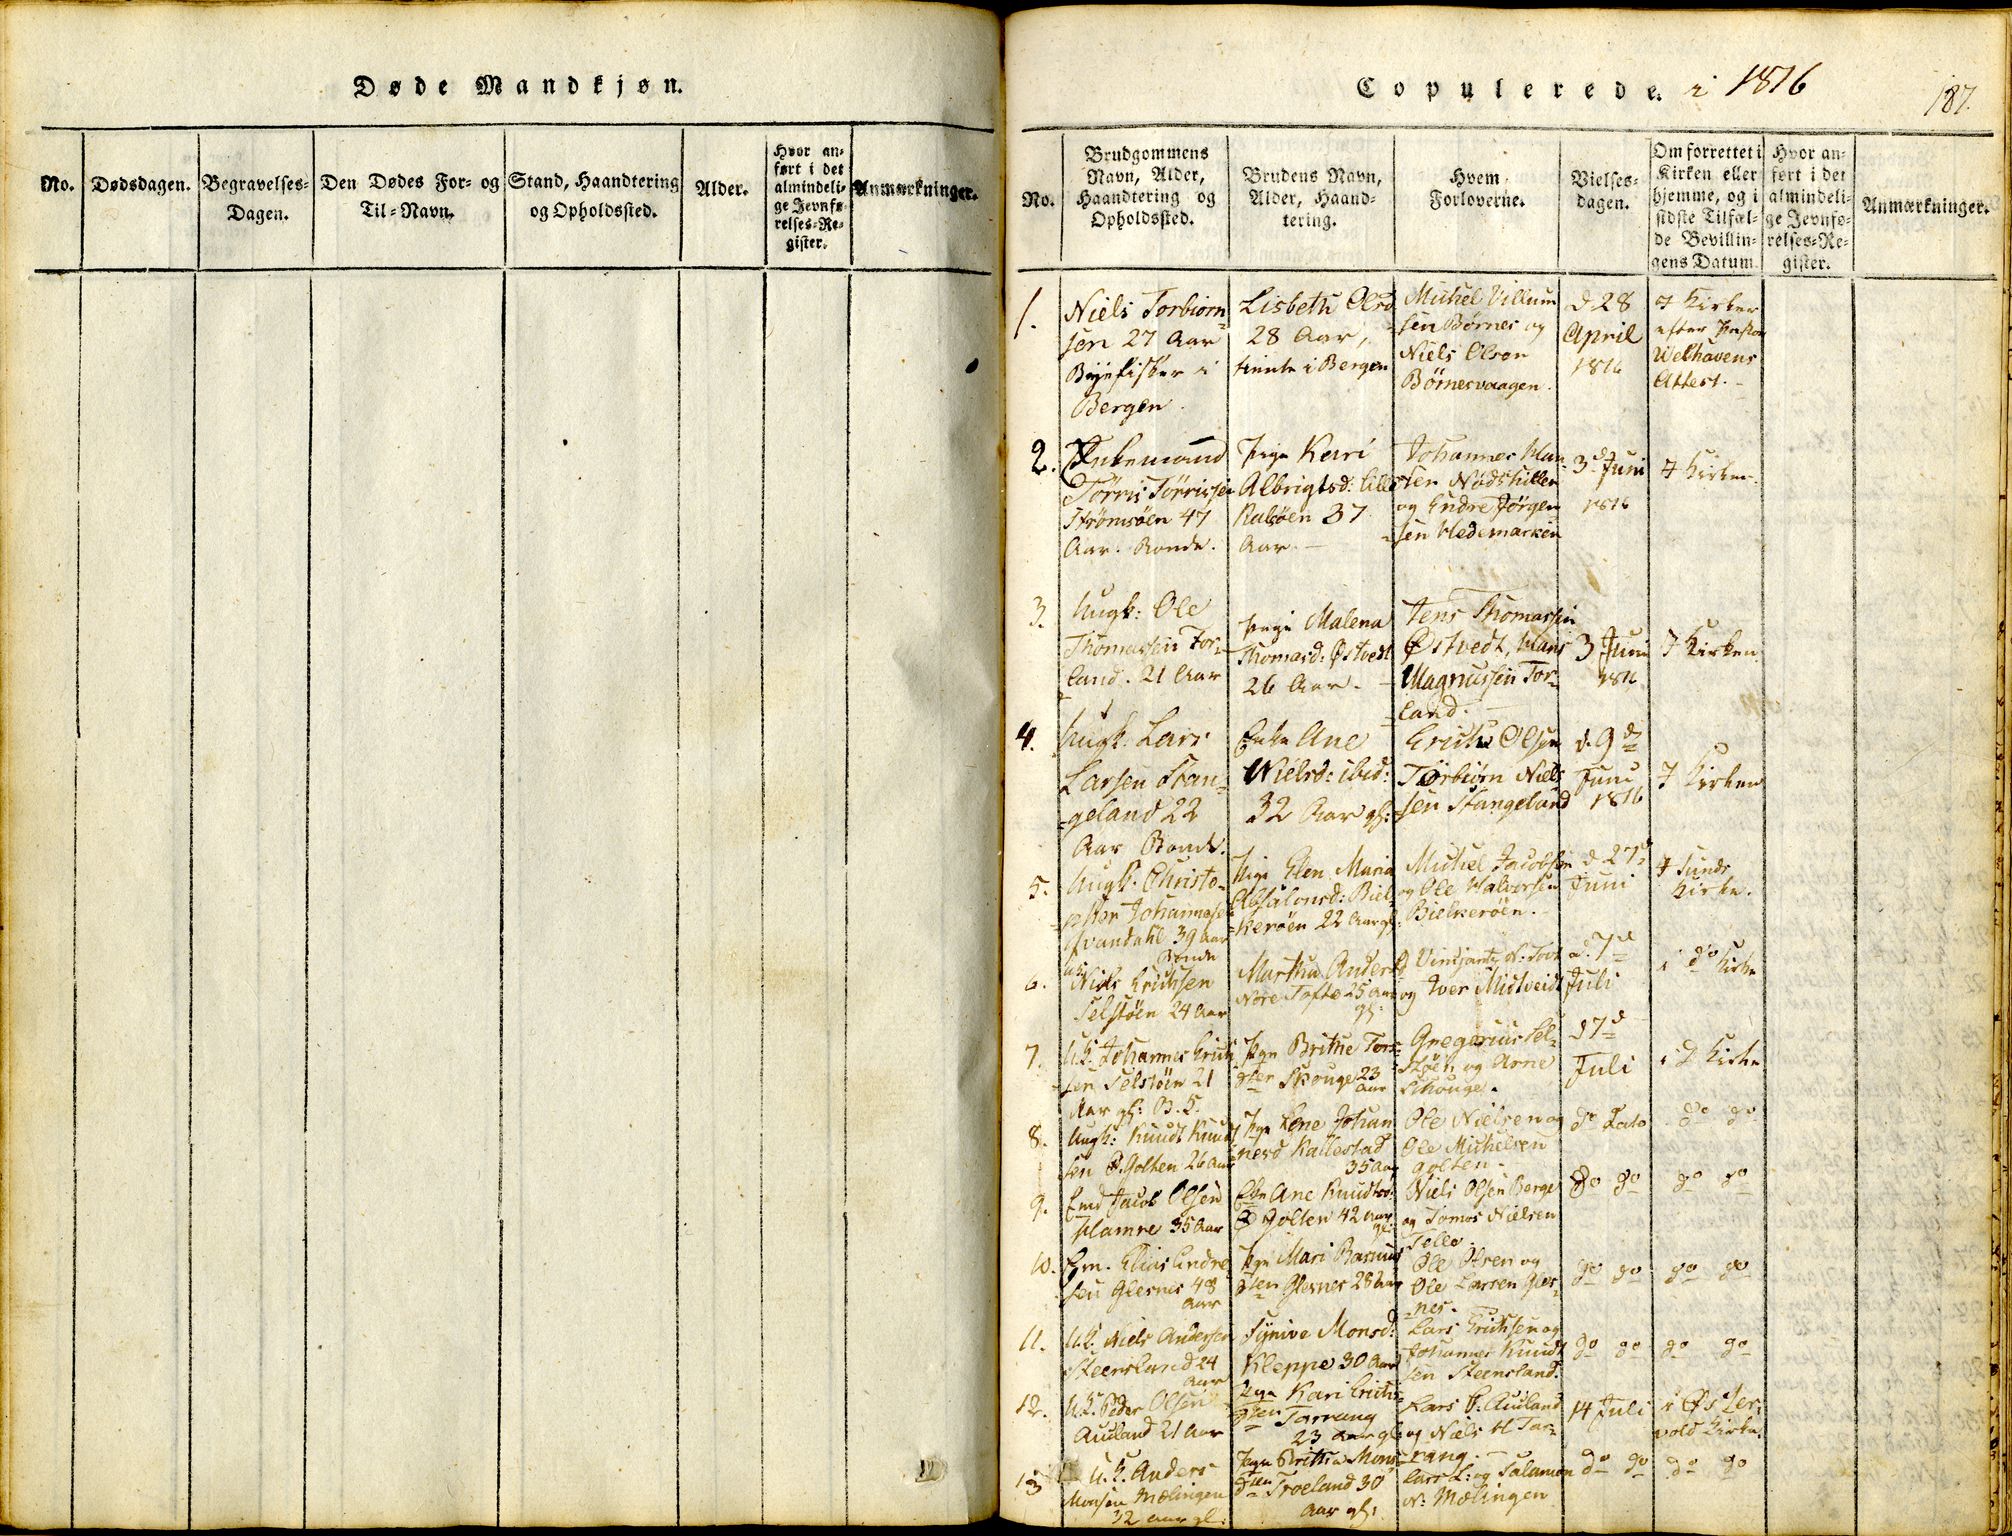 Døde Mandkjøn.
No.
Dødsdagen.
Begravelses-
Dagen.
Den Dødes For- og
Til-Navn.
Stand, Haandtering
og Opholdssted.
Alder.
Hvor an-
ført i det
almindeli-
ge Jevnfø-
relses-Re-
gister.
Anmærkninger.
Copulerede. i 1816
187.
No.
Brudgommens
Navn, Alder,
Haandtering og
Opholdssted.
Brudens Navn,
Alder, Haand-
tering.
Hvem
Forloverne.
Vielses-
dagen.
Om forrettet i
Kirken eller
hjemme, og i
sidste Tilfæl-
de Bevillin-
gens Datum.
Hvor an-
ført i det
almindeli-
ge Jevnfø-
relses-Re-
gister.
Anmærkninger.
1.
Niels Torbiørn-
sen 27 Aar
i
Bergen
Lisbeth Olsd
28 Aar,
tiente i Bergen
Michel Villum
sen Børnes og
Niels Olsen
Børnesvaagen.
d 28
April
1816
J Kirken
efter
Welhavens
Attest. -
2.
Enkemand
Tørris Tørrissen
Strømsøen 47
Aar. Bonde.
Pige Kari
Albrigtsd: Lille
Kalsøen 37
Aar. -
Johannes Han
sen
og Endre Jørgen
sen Hedemarken
3d Juni
1816
J Kirken
3.
Ungk: Ole
Thomassen Tor-
land. 21 Aar
Pige Malena
Thomasd: Østvedt
26 Aar. -
Jens Thomassen
Østvedt, Hans
Magnussen Tor-
land.
3 Juni
1816
J Kirken.
4.
Ungk. Lars
Larsen Stan-
geland 22
Aar Bonde.
Enke Ane
Nielsd: ibid:
32 Aar gl:
Erich Olsen
Torbiørn Niels
sen Stangeland
d. 9d
Juni
1816
J Kirken
5.
Ungk. Christo-
pher Johannesen
39 Aar
Bonde
Pige Elen Maria
Absalonsd: Biel-
kerøen 22 Aar gl.
Michel Jacobsen
og Ole Halvorsen
Bielkerøen. -
d 27d
Juni
J Sunds
Kirke.
6.
Niels Erichsen
Selstøen 24 Aar
Martha Andersd
Nore Tofte 25 Aar
gl:
og Iver Midtveidt
d. 7d
Juli
i do Kirke
7.
U.K. Johannes Erich
sen Selstøen 21
Aar gl: B. S.
Pge Brithe Tors-
dter Skouge 23
Aar
Gregorius Sel-
støen og Arne
Schouge.
d 7d
Juli
i D Kirke
8.
Ungk: Knudt Knudt
sen Ø. Golten 26 Aar
Pge Lene Johan
nesd Kallestad
35 Aar
Ole Nielsen og
Ole Michelsen
Golten. -
do Dato
do do
9.
Emd Jacob Olsen
35 Aar
Eke Ane Knudtsd:
Ø Golten 42 Aar
gl:
Niels Olsen Berge
og Tomos Nielsen
Telle.
do do
do do
10.
Em. Elias Endre
sen Glesnes 48
Aar
Pge Mari Rasmus
dter Glesnes 28 Aar
Ole Olsen og
Ole Larsen Gles-
nes.
do do
do do
11.
U.K. Niels Andersen
Steensland 24
Aar
Synive Monsd:
Kleppe 30 Aar
Lars Erichsen og
Johannes Knudt
sen Steensland.
do do
do do
12.
U.K. Peder Olsen
Auland 21 Aar
Pge Kari Erichs-
dter Tarrang
23 Aar gl:
Lars P. Auland
og Niels H Tar-
rang. -
14 Juli
i Øster-
vold Kirke.
13
U.K. Anders
Monsen Mælingen
32 Aar gl:
Pge Brithe Mons-
dter Troeland 30
Aar gl:
Lars L: og Salamon
N: Mælingen
do do
do do